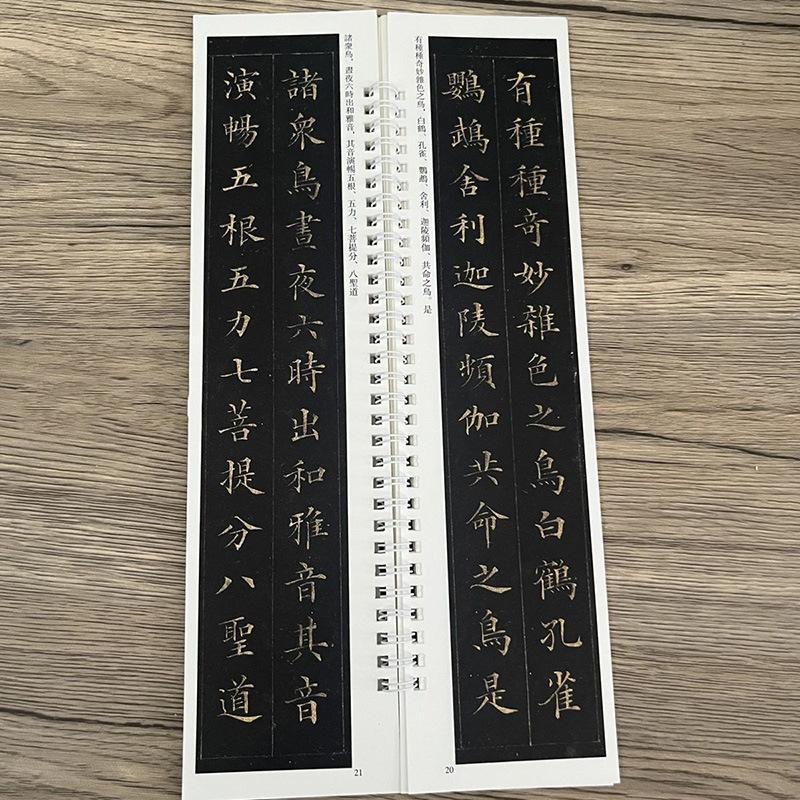 有種種奇妙雜色之鳥白鶴孔雀
鸚鵡舍利迦陵頻伽共命之鳥是
有種種奇妙雜色之鳥，白鶴、孔雀、鸚鵡、舍利、迦陵頻伽、共命之鳥。是
20
諸衆鳥，晝夜六時出和雅音，其音演暢五根、五力、七菩提分、八聖道
諸衆鳥晝夜六時出和雅音其音
演暢五根五力七菩提分八聖道
21